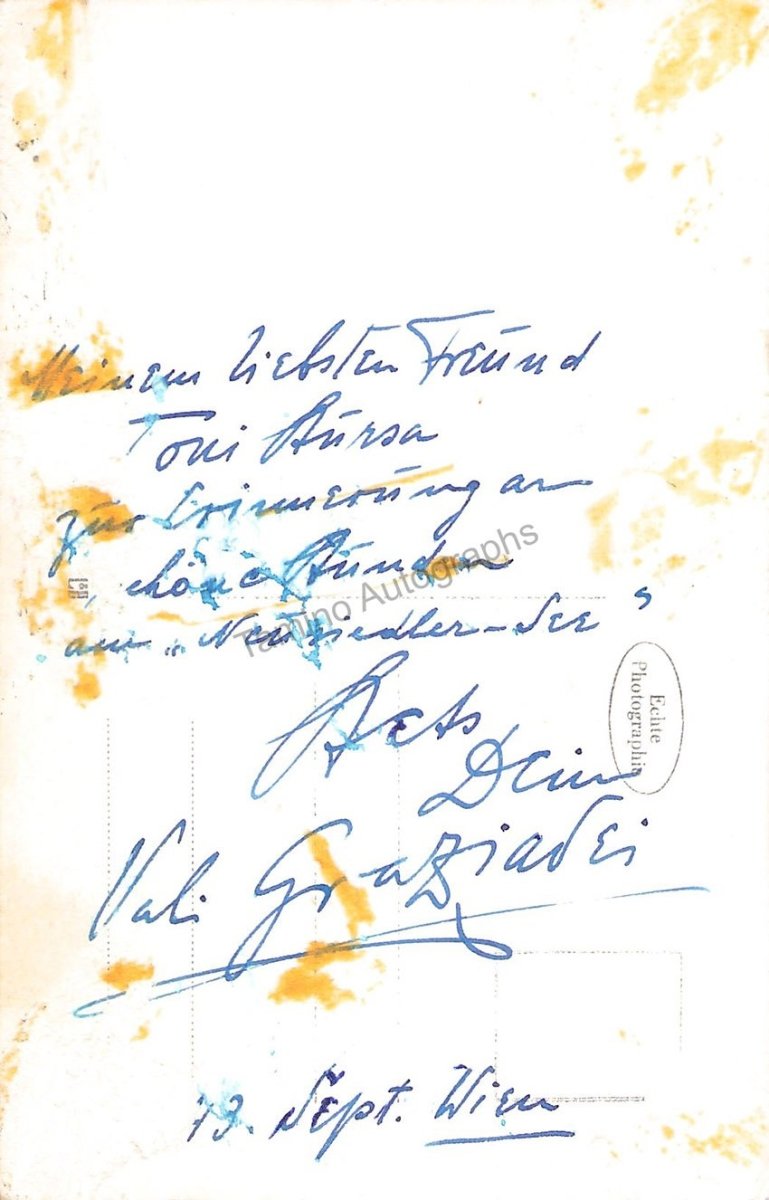 Meinem liebsten Freund
Toni
zur Erinnerung an
schöne Stunden
am „Neusiedler-See"
Stets
Dein
Vali Graziadei
Sept. Wien
Echte
Photographie
Tamino Autographs